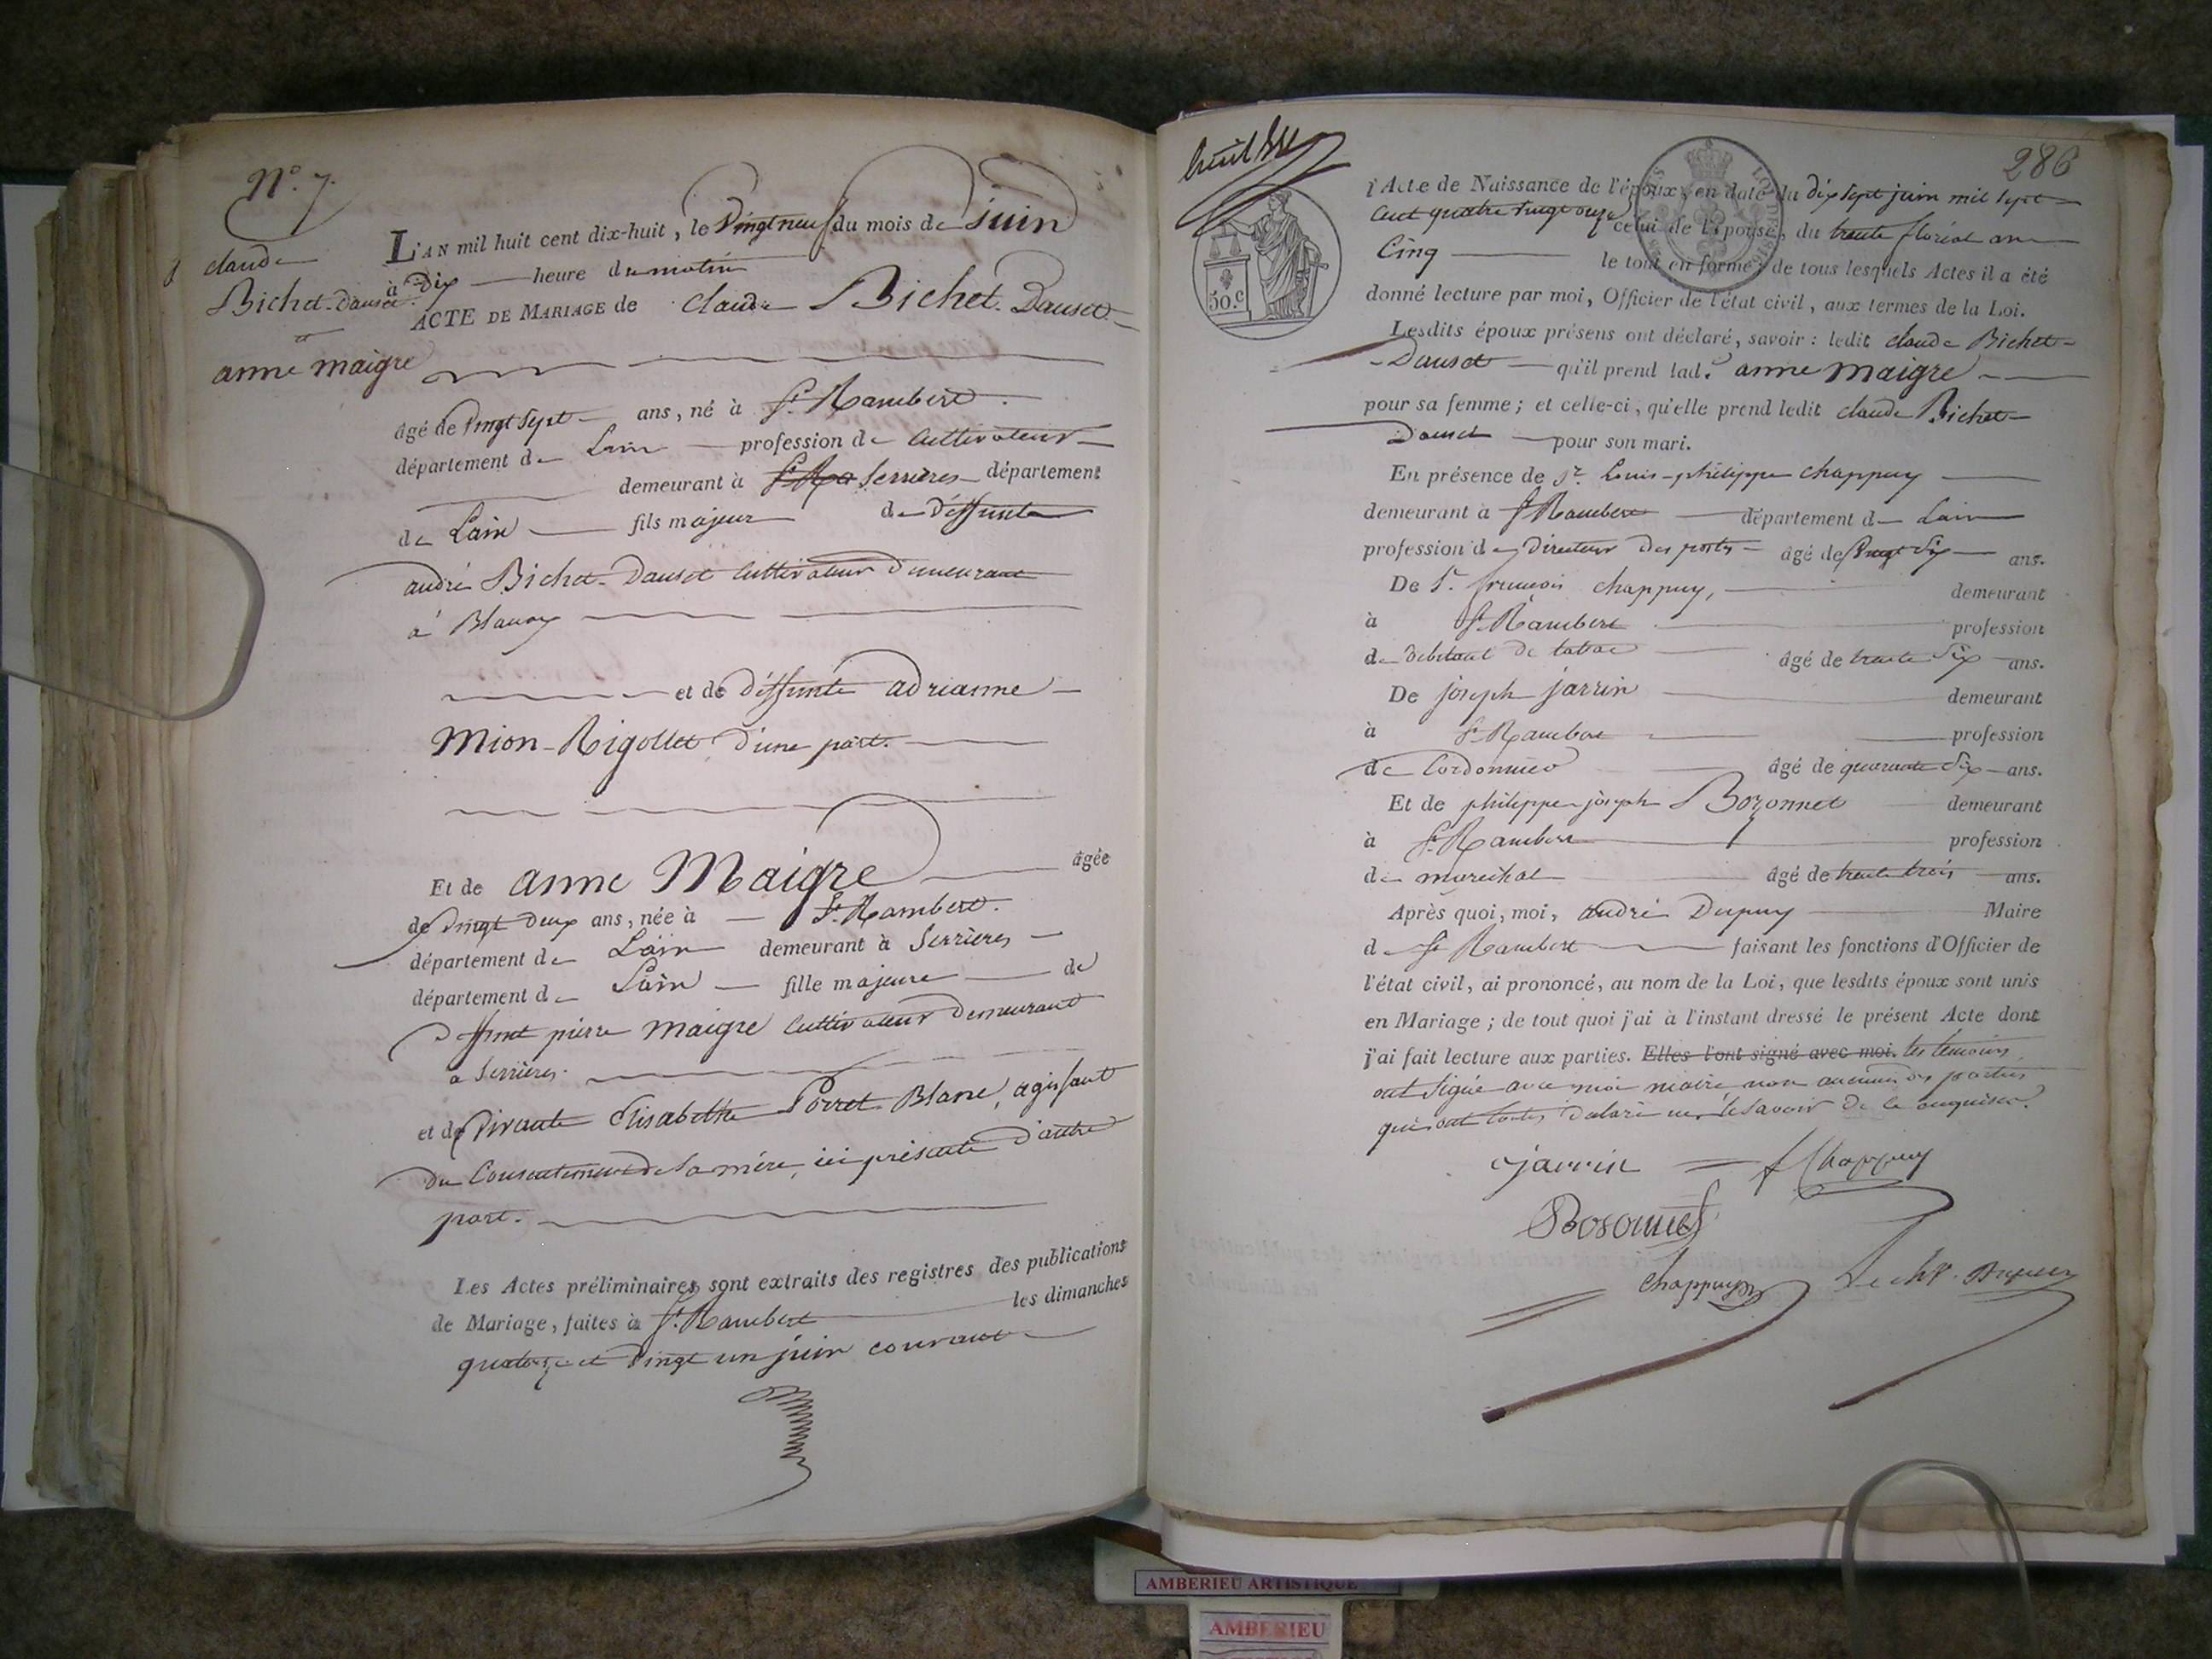 N.° 7.
claude
Bichet-Dauset
et
anne maigre
L'AN mil huit cent dix-huit, le Vingt neuf du mois de juin
à Dix heure du matin
ACTE DE MARIAGE de claude Bichet-Dauset
âgé de Vingt Sept ans, né à St. Rambert.
département de Lain profession de Cultivateur
demeurant à St. Ra Serrieres département
de Lain fils majeur de déffunt
andré Bichet-Dauset Cultivateur Demeurant
à Blanaz
et de déffunte adrianne
Mion-Rigollet d'une part.
Et de anne Maigre âgée
de Vingt Deux ans, née à St. Rambert.
département de Lain demeurant à Serrières
département de Lain fille majeure de
Deffunt pierre maigre Cultivateur Demeurant
a Serrières.
et de Vivante Elisabethe Porret-Blanc, agissant
Du Consentement de Sa mére, ici présente d'autre
part.
Les Actes préliminaires sont extraits des registres des publications
de Mariage, faites à St. Rambert les dimanches
quatorze et Vingt un juin courant
286
50.c
l'Acte de Naissance de l'époux, en date du dix Sept juin mil Sept
Cent quatre Vingt onze celui de l'épouse, du trente floréal an
Cinq le tout en forme; de tous lesquels Actes il a été
donné lecture par moi, Officier de l'état civil, aux termes de la Loi.
Lesdits époux présens ont déclaré, savoir: ledit claude Bichet-
-Dauset qu'il prend lad.e anne maigre
pour sa femme; et celle-ci, qu'elle prend ledit claude Bichet-
Dauset pour son mari.
En présence de Sr. Louis-philippe chappuy
demeurant à St Rambert département de Lain
profession de Directeur des postes âgé de Vingt Six ans.
De Sr. françois chappuy, demeurant
à St. Rambert profession
de debitant de tabac âgé de trente Six ans.
De joseph jarrin demeurant
à St. Rambert profession
de Cordonnier âgé de quarante Six ans.
Et de philippe-joseph Bozonnet demeurant
à St. Rambert profession
de maréchal âgé de trente trois ans.
Après quoi, moi, andré Dupuy Maire
de St Rambert faisant les fonctions d'Officier de
l'état civil, ai prononcé, au nom de la Loi, que lesdits époux sont unis
en Mariage; de tout quoi j'ai à l'instant dressé le présent Acte dont
j'ai fait lecture aux parties. Elles l'ont signé avec moi. les temoins
ont Signé avec moi maire non aucune des parties
qui ont toutes Declaré ne le Savoir de ce enquises.
Jarrin f Chappuy
Bosonnet
Chappuy Le chr. Dupuy
AMBERIEU ARTISTIQUE
AMBERIEU